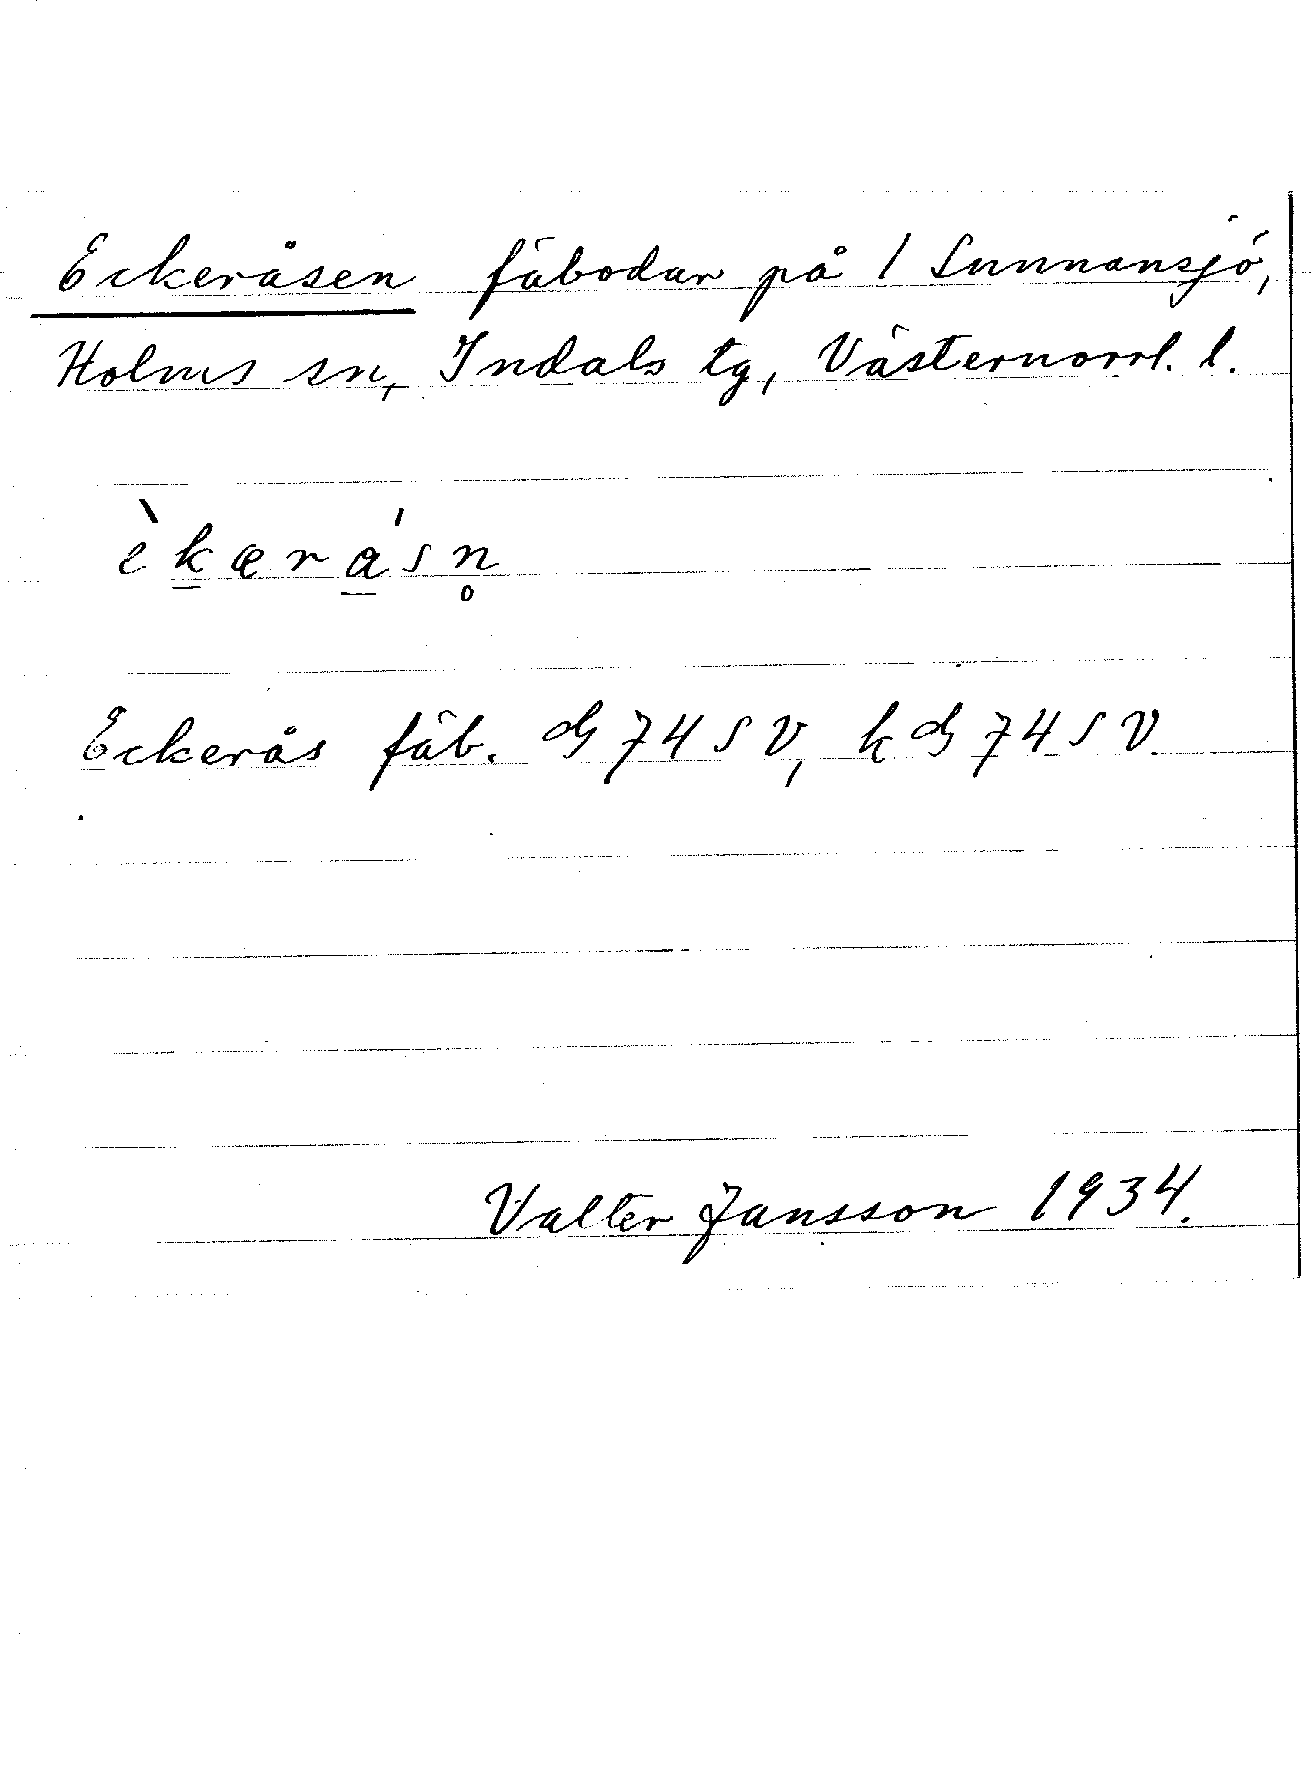 Eckeråsen fäbodar på 1 Sunnansjö,
Holms sn, Indals tg, Västernorrl. l.
èk̲ærá̲sn̥
Eckerås fäb. dG 74 SV, k dG 74 SV.
Valter Jansson 1934.